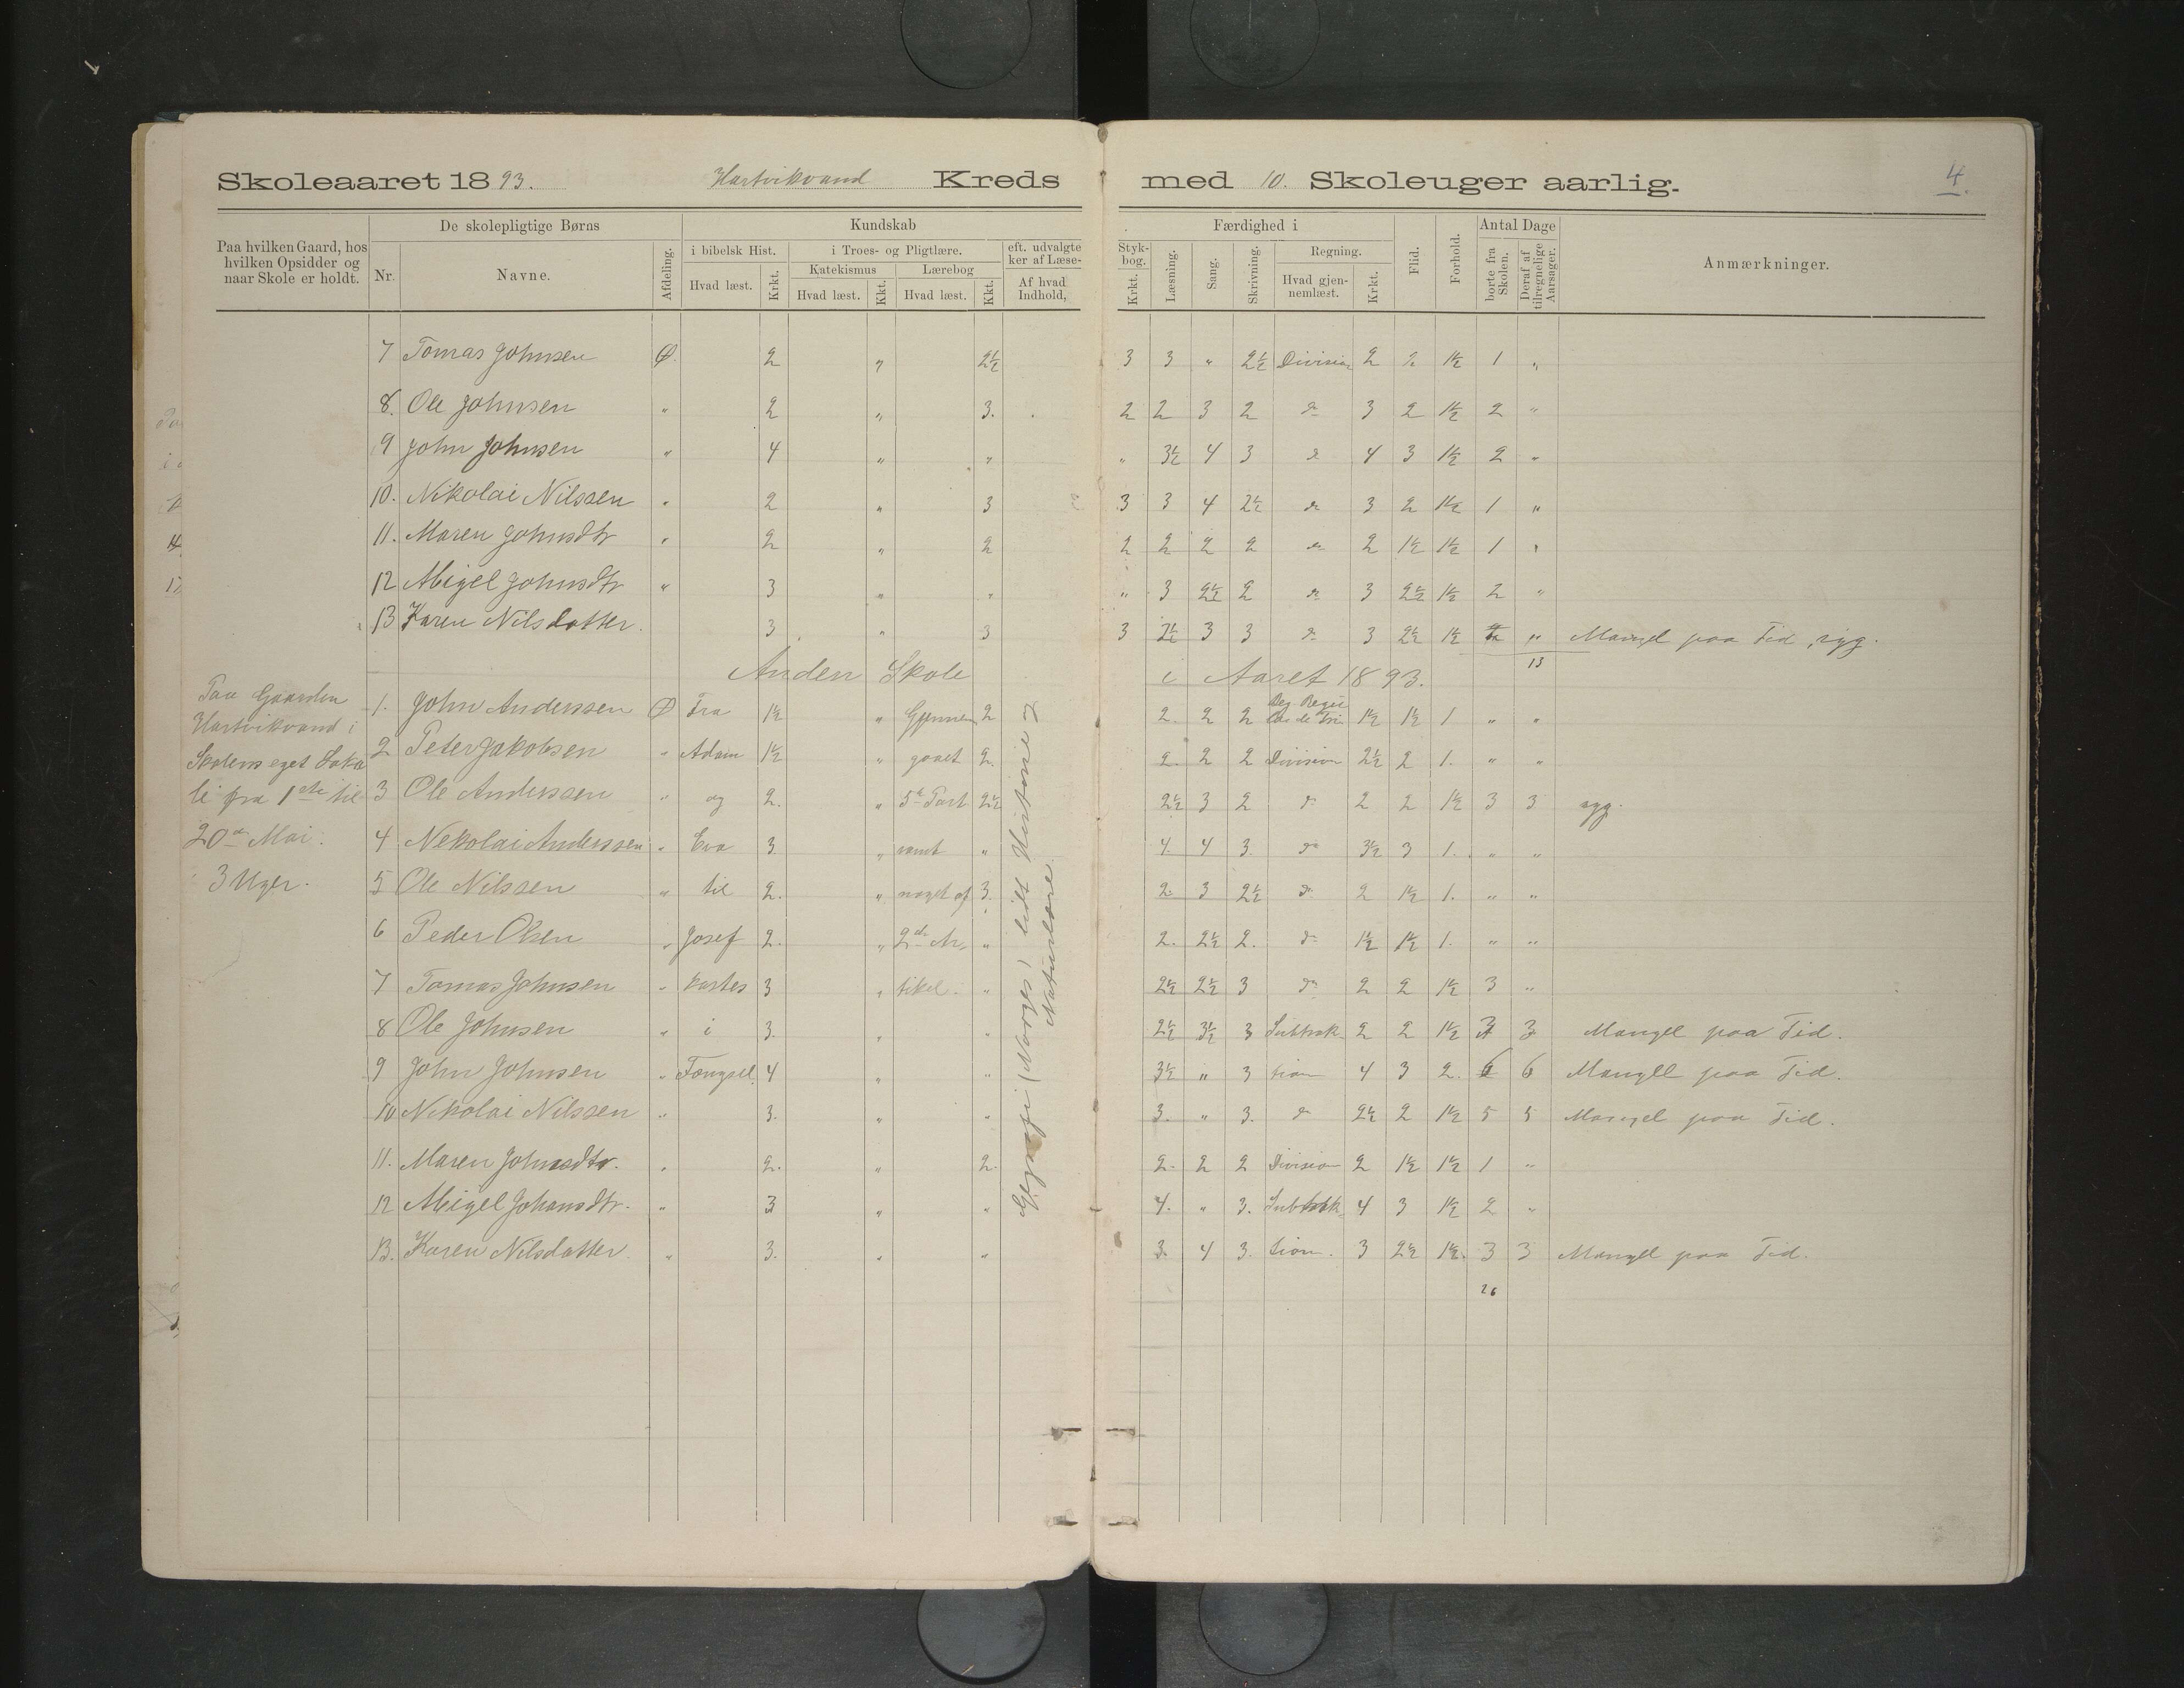 Skoleaaret 1893. Hartvikvand Kreds med 10. Skoleuger aarlig. 4.
Paa hvilken Gaard, hos hvilken Opsidder og naar Skole er holdt.
De skolepligtige Børns
Nr. Navne. Afdeling.
Kundskab
i bibelsk Hist. Hvad læst. Krkt.
i Troes- og Pligtlære.
Katekismus Hvad læst. Kkt.
Lærebog Hvad læst. Kkt.
eft. udvalgte
ker af Læse-
Af hvad
Indhold,
Færdighed i
Styk-
bog.
Krkt. Læsning. Sang. Skrivning.
Regning.
Hvad gjen-
nemlæst. Krkt.
Flid. Forhold.
Antal Dage
borte fra Skolen. Deraf af tilregnelige Aarsager.
Anmærkninger.
7 Tomas Johnsen Ø. 2 " 2½ 3 3 " 2½ Division 2 2 1½ 1 "
8. Ole Johnsen " 2 " 3. 2 2 3 2 do 3 2 1½ 2 "
9 John Johnsen " 4 " " " 3½ 4 3 do 4 3 1½ 2 "
10. Nikolai Nilssen " 2 " 3 3 3 4 2½ do 3 2 1½ 1 "
11. Maren Johnsdtr " 2 " 2 2 2 2 2 do 2 1½ 1½ 1 "
12 Abigel Johnsdtr " 3 " " " 3 2½ 2 do 3 2½ 1½ 2 "
13 Karen Nilsdatter. 3 " 3 3 3½ 3 3 do 3 2½ 1½ " Mangel paa Tid, syg.
13
Anden Skole i Aaret 1893.
Paa Gaarden
Hartvikvand i
Skolens eget Loka
le fra 1ste til
20de Mai.
3 Uger.
1. John Anderssen Ø Fra 1½ " Gjennem 2 2. 2 2 1½ 1½ 1 " "
2 Peter Jakobsen " Adam 1½ " gaaet 2. 2. 2 2 Division 2½ 2 1. " "
3 Ole Anderssen " og 2. " 5te Part 2½ 2½ 3 2 do 2 2 1½ 3 3 syg.
4 Nekolai Anderssen " Eva 3. " samt " 4. 4 3. do 3½ 3 1. " "
5 Ole Nilssen " til 2. " noget af 3. 2. 3 2½ do 2 1½ 1. " "
6 Peder Olsen " Josef 2. " 2den Ar " 2. 2½ 2. do 1½ 1½ 1. " "
7 Tomas Johnsen " kastes 3 " tikel. " 2½ 2½ 3 do 2 2 1½ 3 "
8 Ole Johnsen " i 3. " " 2½ 3½ 3 Subtrak 2 2 1½ 3 3 Mangel paa Tid.
9 John Johnsen " Fængsel. 4 " " 3½ " 3 tion 4 3 2. 6 6 Mangell paa Tid.
10 Nikolai Nilssen " 3. " " 3. " 3. do 2½ 2 1½ 5 5 Mangel paa Tid.
11. Maren Johnsdtr. " 2. " 2. 2. 2 2 Division 2 1½ 1½ 1 "
12 Abigel Johansdtr. " 3 " " 4. " 3. Subtrak 4 3 1½ 2 "
13. Karen Nilsdatter. " 3. " " 3. 4 3. tion. 3 2½ 1½. 3 3 Mangel paa Tid.
26
Geografi (Norges) lidt Historie og
Naturlære